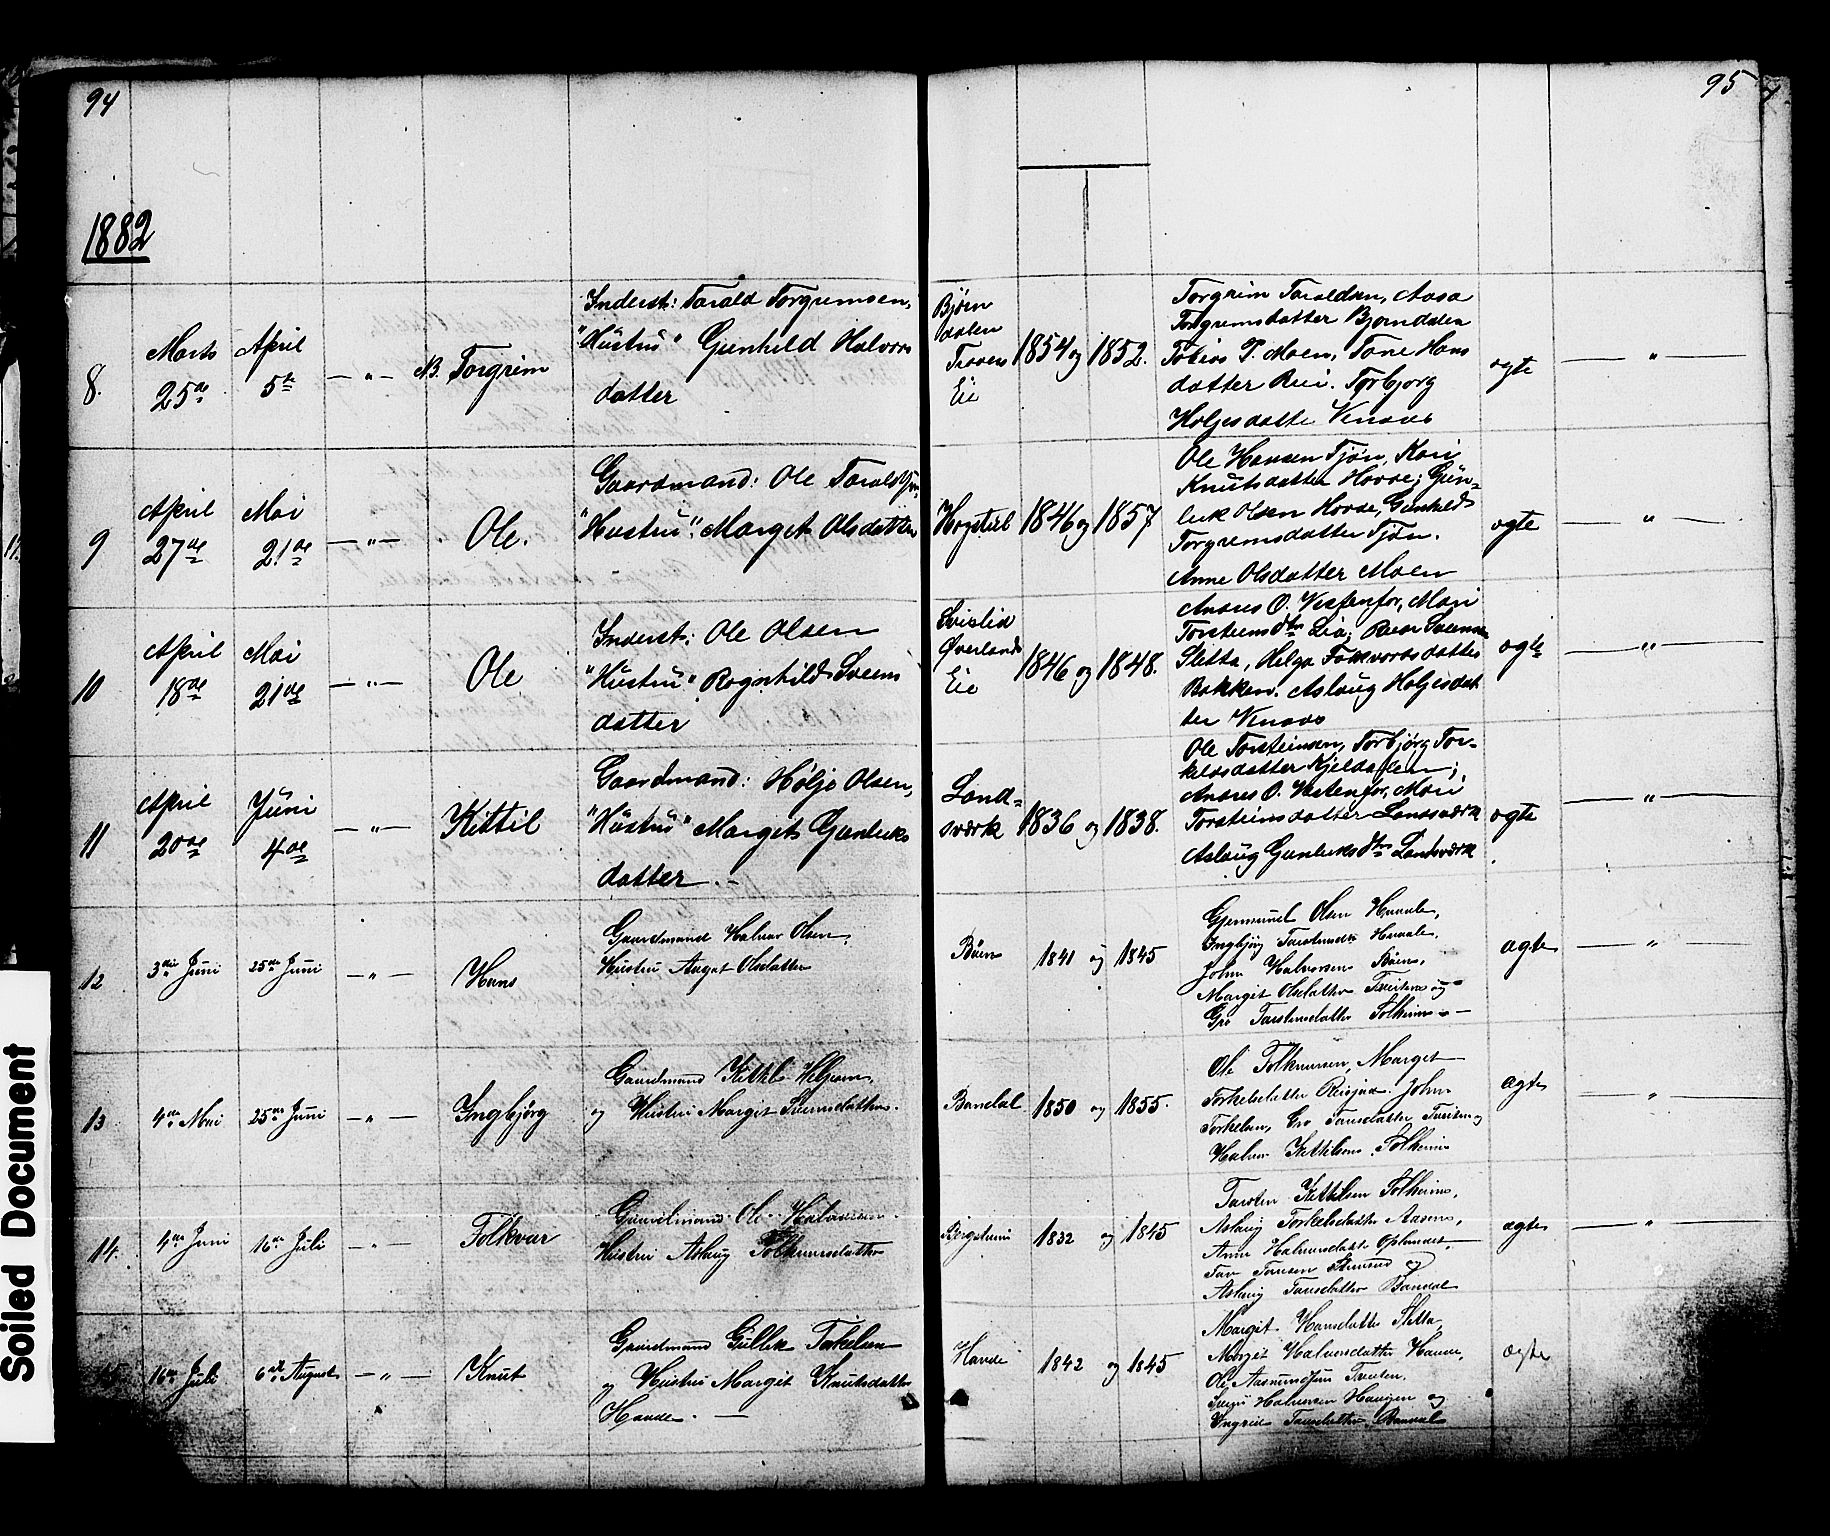 94
95
1882
8.
Marts
25de
April
5te
— " —
N. Torgrim
Inderst: Tarald Torgrimsen,
"Hustru" Gunhild Halvors
datter
Bjørn
dalen
Eie
1854 og 1852.
Torgrim Taraldsen, Aasa
Torgrimsdatter Bjørndalen
Tobias T. Moen, Tone Hans
datter Rui. Torbjørg
Holjesdatte Venaas
ægte
— " —
9
April
27de
Mai
21de
— " —
Ole.
Gaardmand: Ole Tarald
"Hustru": Marget Olsdatter
1846 og 1857
Ole Hansen Tjøn, Kari
Knutsdatter Hovde; Gun-
leik Olsen Hovde, Gunhild
Torgrimsdatter Tjøn.
Anne Olsdatter Moen
ægte
— " —
10
April
18de
Mai
21de
— " —
Ole
Inderst: Ole Olsen
"Hustru" Ragnhild Sveins
datter
Øverlands
Eie
1846 og 1848.
Anders O. Vestenfor, Mari
Torsteinsdtr Lia;
Sletta, Helga Folkvorsdatter
Bakken. Aslaug Holjesdat
ter Venaas
ægte
— " —
11
April
20de
Juni
4de
— " —
Kittil
Gaardmand: Høljo Olsen,
"Hustru" Marget Gunleiks
datter. —
Land=
sværk
1836 og 1838.
Ole Torsteinsen, Torbjørg Tor-
kelsdatter Kjeldalen;
Anders O. Vestenfor, Mari
Torsteinsdatter Landsværk
Aslaug Gunleiksdtr Landsværk
ægte
— " —
12
3die Juni
25de Juni
— " —
Hans
Gaardmand Halvor Olsen,
Hustru Aaget Olsdatter
Bøen
1841 og 1845
Gjermund Olsen
Ingbjørg
John Halvorsen Bøen,
Margit Olsdatter og
Gro Tarstensdatter Solheim —
ægte
— " —
13
4de Mai
25de Juni
— " —
Ingbjørg
Gaardmand Kittil
og Hustru Margit Svensdatter.
Bandal
1850 og 1855.
Ole Folkvarsen, Marget
Torkelsdatter John
Torkelsen, Gro og
Halvor Kittilsen Solheim
ægte
— " —
14.
4de Juni
16de Juli
— " —
Folkvar
Gaardmand Ole Halvorsen
Hustru Aslaug Folkvarsdatter
1832 og 1845
Tarsten Kittilsen Solheim,
Aslaug Torkelsdatter Aasen,
Anne Halvorsdatter
og
Aslaug Bandal
ægte
— " —
16de Juli
6te August
— " —
Knut
Gaardmand Gullik Torkelsen
og Hustru Margit Knutsdatter
Havde. —
Havde
1842 og 1845
Margit Hansdatter Sletta,
Margit Halvorsdatter
Ole Aasmundsen
Halvorsen Haugen og
Ingrid Bandal
ægte
Soiled Document